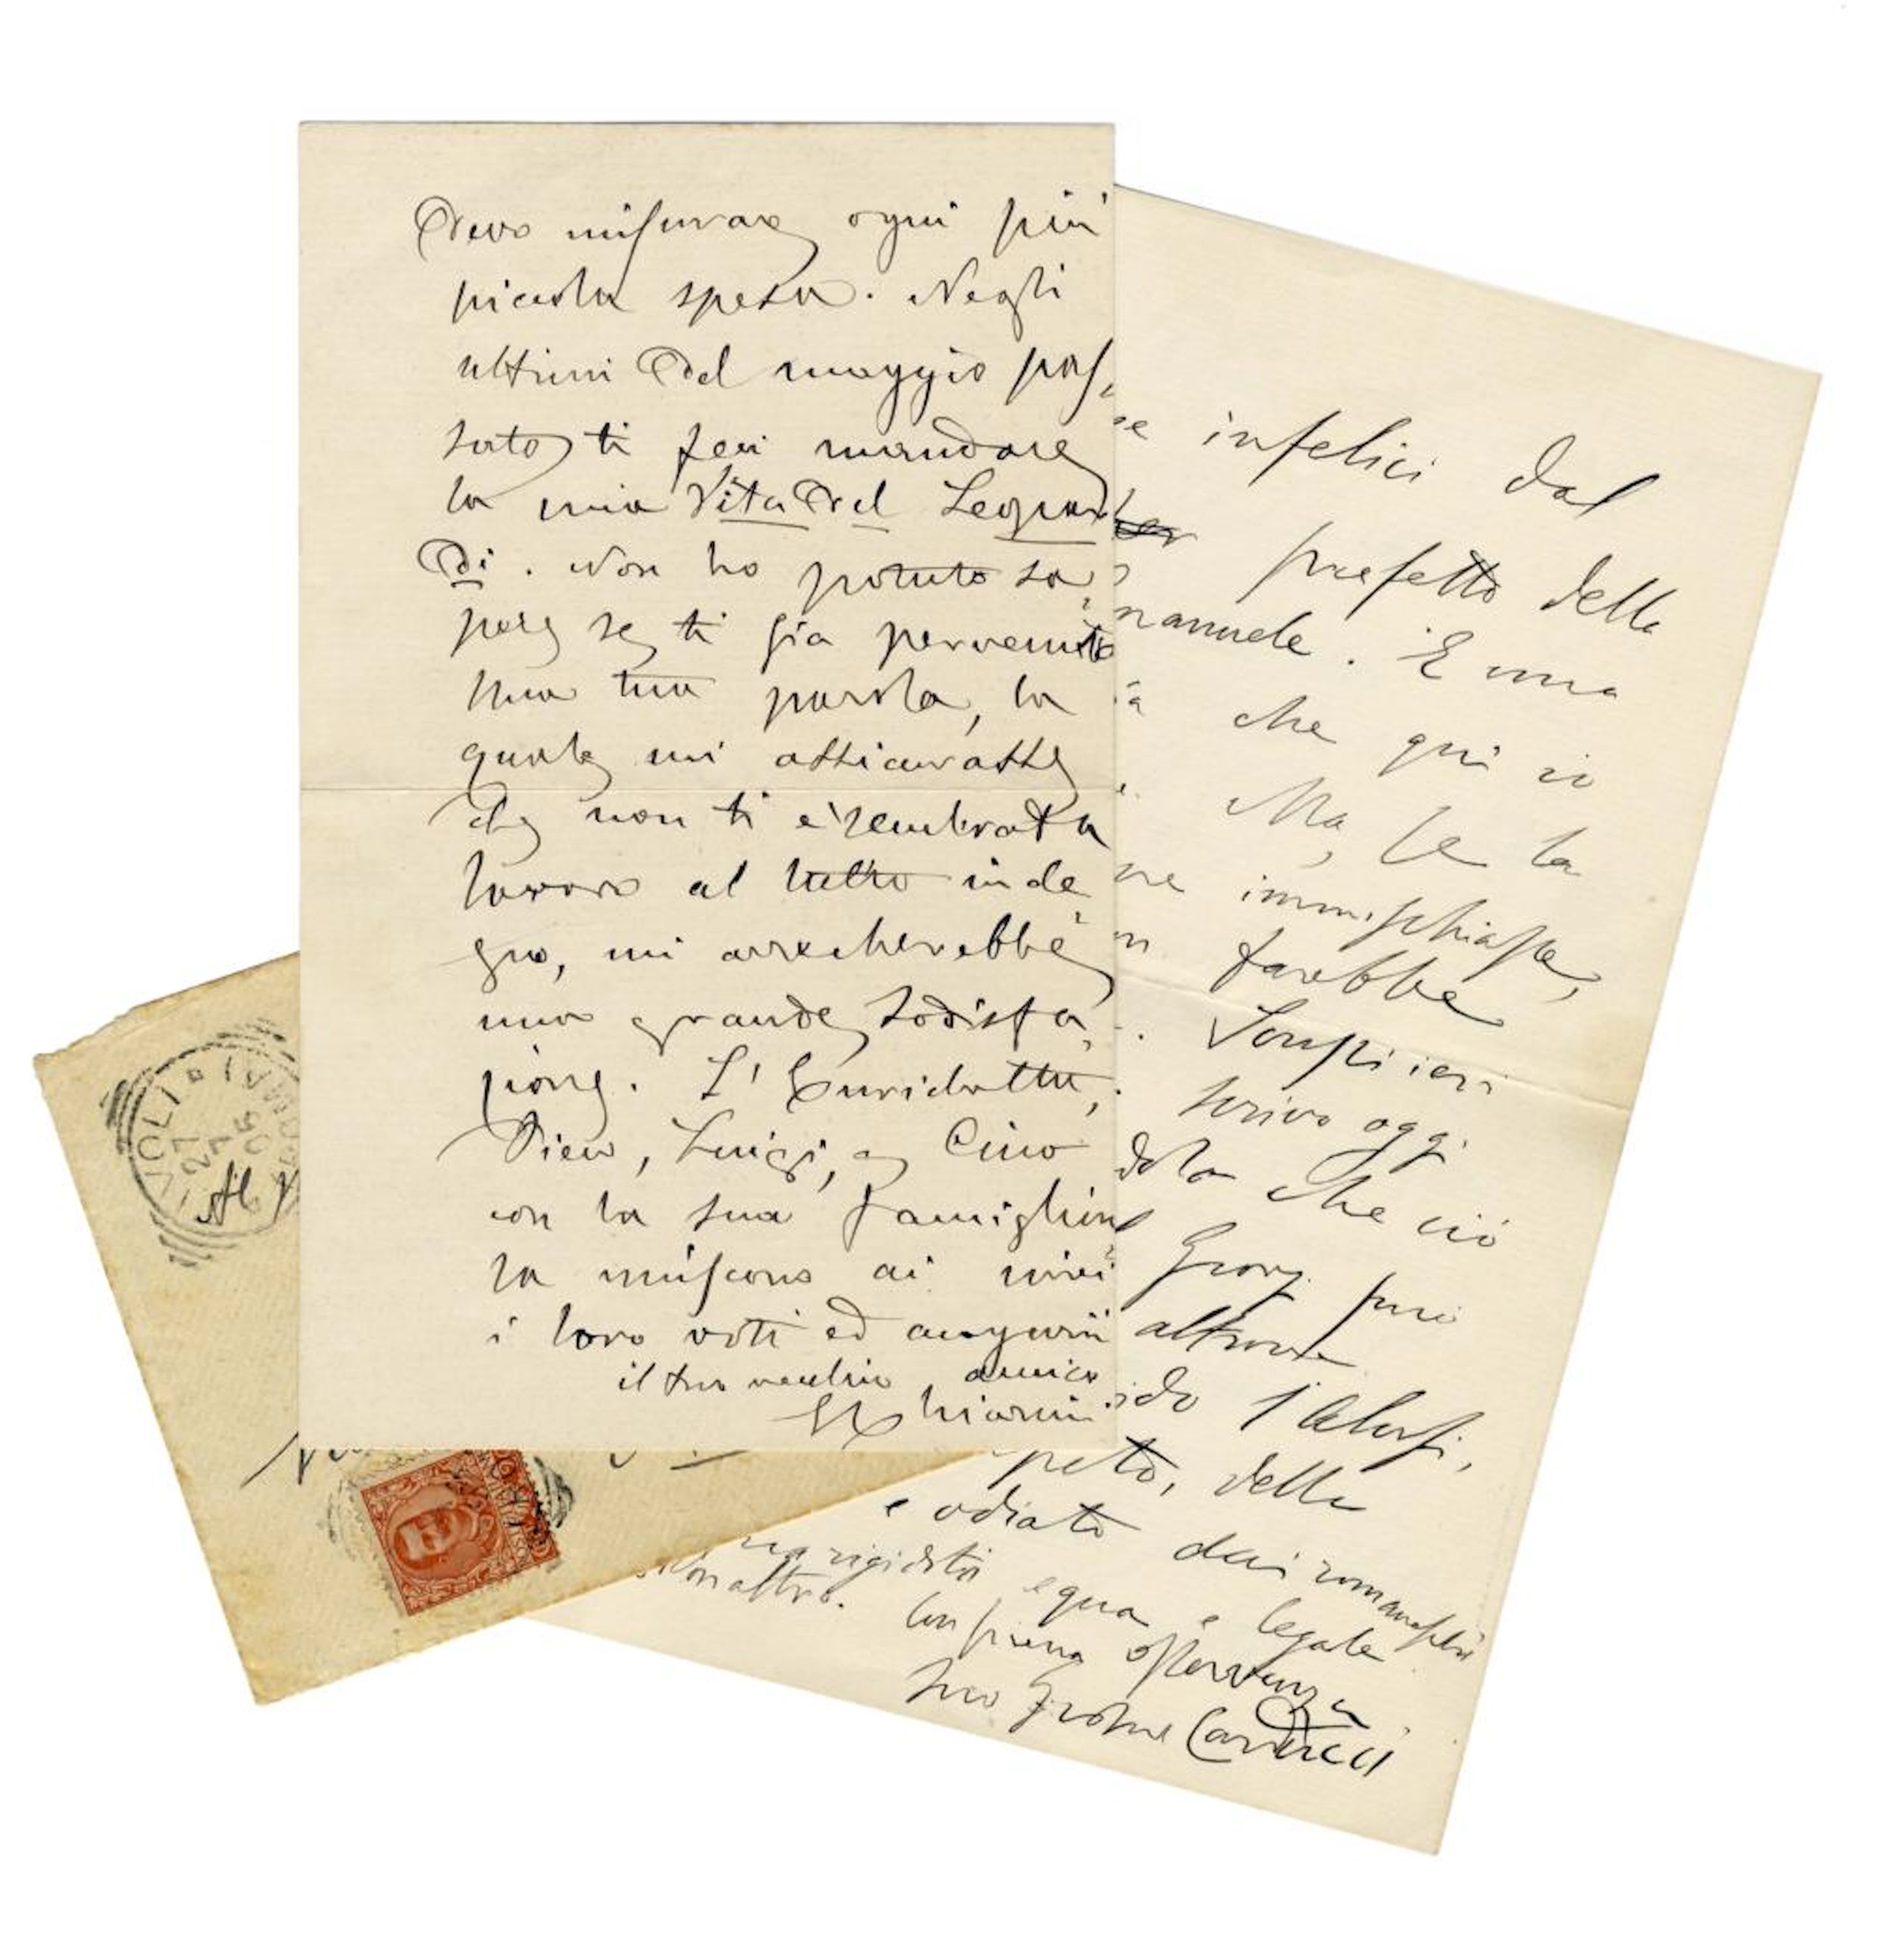 devo misurare ogni più
piccola spesa. Negli
ultimi del maggio pas,
sato ti feci mandare
la mia Vita del Leopar
di. Non ho potuto sa,
pere se ti sia pervenuta
Una tua parola, la
quale mi assicurasse
che non ti è sembrata
lavoro al tutto inde,
gno, mi arrecherebbe
una grande sodisfa,
zione. L'
Piero, Luigi, e Cino
con la sua famigliuo,
la uniscono ai miei
i loro voti ed augurii
il tuo vecchio amico
GChiarini
se infelici dal
prefetto della
manuele. È una
che qui io
Ma, se la
immischiasse,
farebbe
Scrissi ieri
scrivo oggi
che ciò
può
altrove
peto, della
e odiato dai romaneschi
rigidità equa e legale
Non altro.
Con piena osservanza
suo Giosue Carducci
VOLI
27
7
05
Al